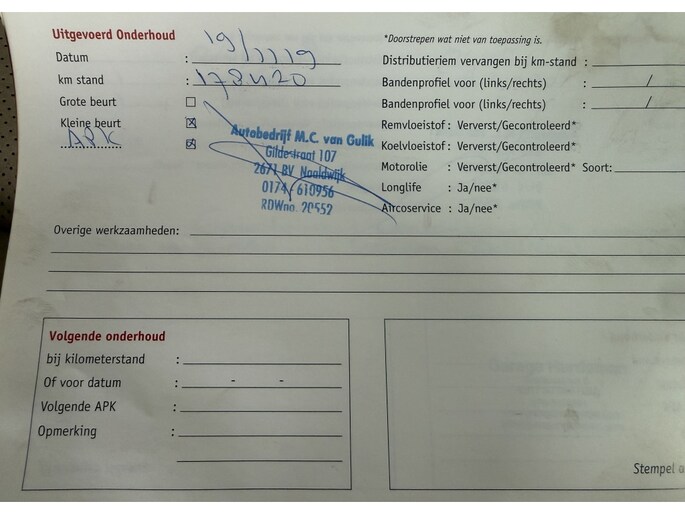 Uitgevoerd Onderhoud
*Doorstrepen wat niet van toepassing is.
Datum : 19/1119
Distributieriem vervangen bij km-stand :
km stand : 178420
Bandenprofiel voor (links/rechts) : /
Grote beurt
Bandenprofiel voor (links/rechts) : /
Kleine beurt
Remvloeistof : Ververst/Gecontroleerd*
APK
Koelvloeistof : Ververst/Gecontroleerd*
Motorolie : Ververst/Gecontroleerd* Soort:
Longlife : Ja/nee*
Aircoservice : Ja/nee*
Autobedrijf M.C. van Gulik
Gildestraat 107
2671 BV Naaldwijk
0174 610956
RDWno. 20552
Overige werkzaamheden:
Volgende onderhoud
bij kilometerstand :
Of voor datum : - -
Volgende APK :
Opmerking :
Stempel